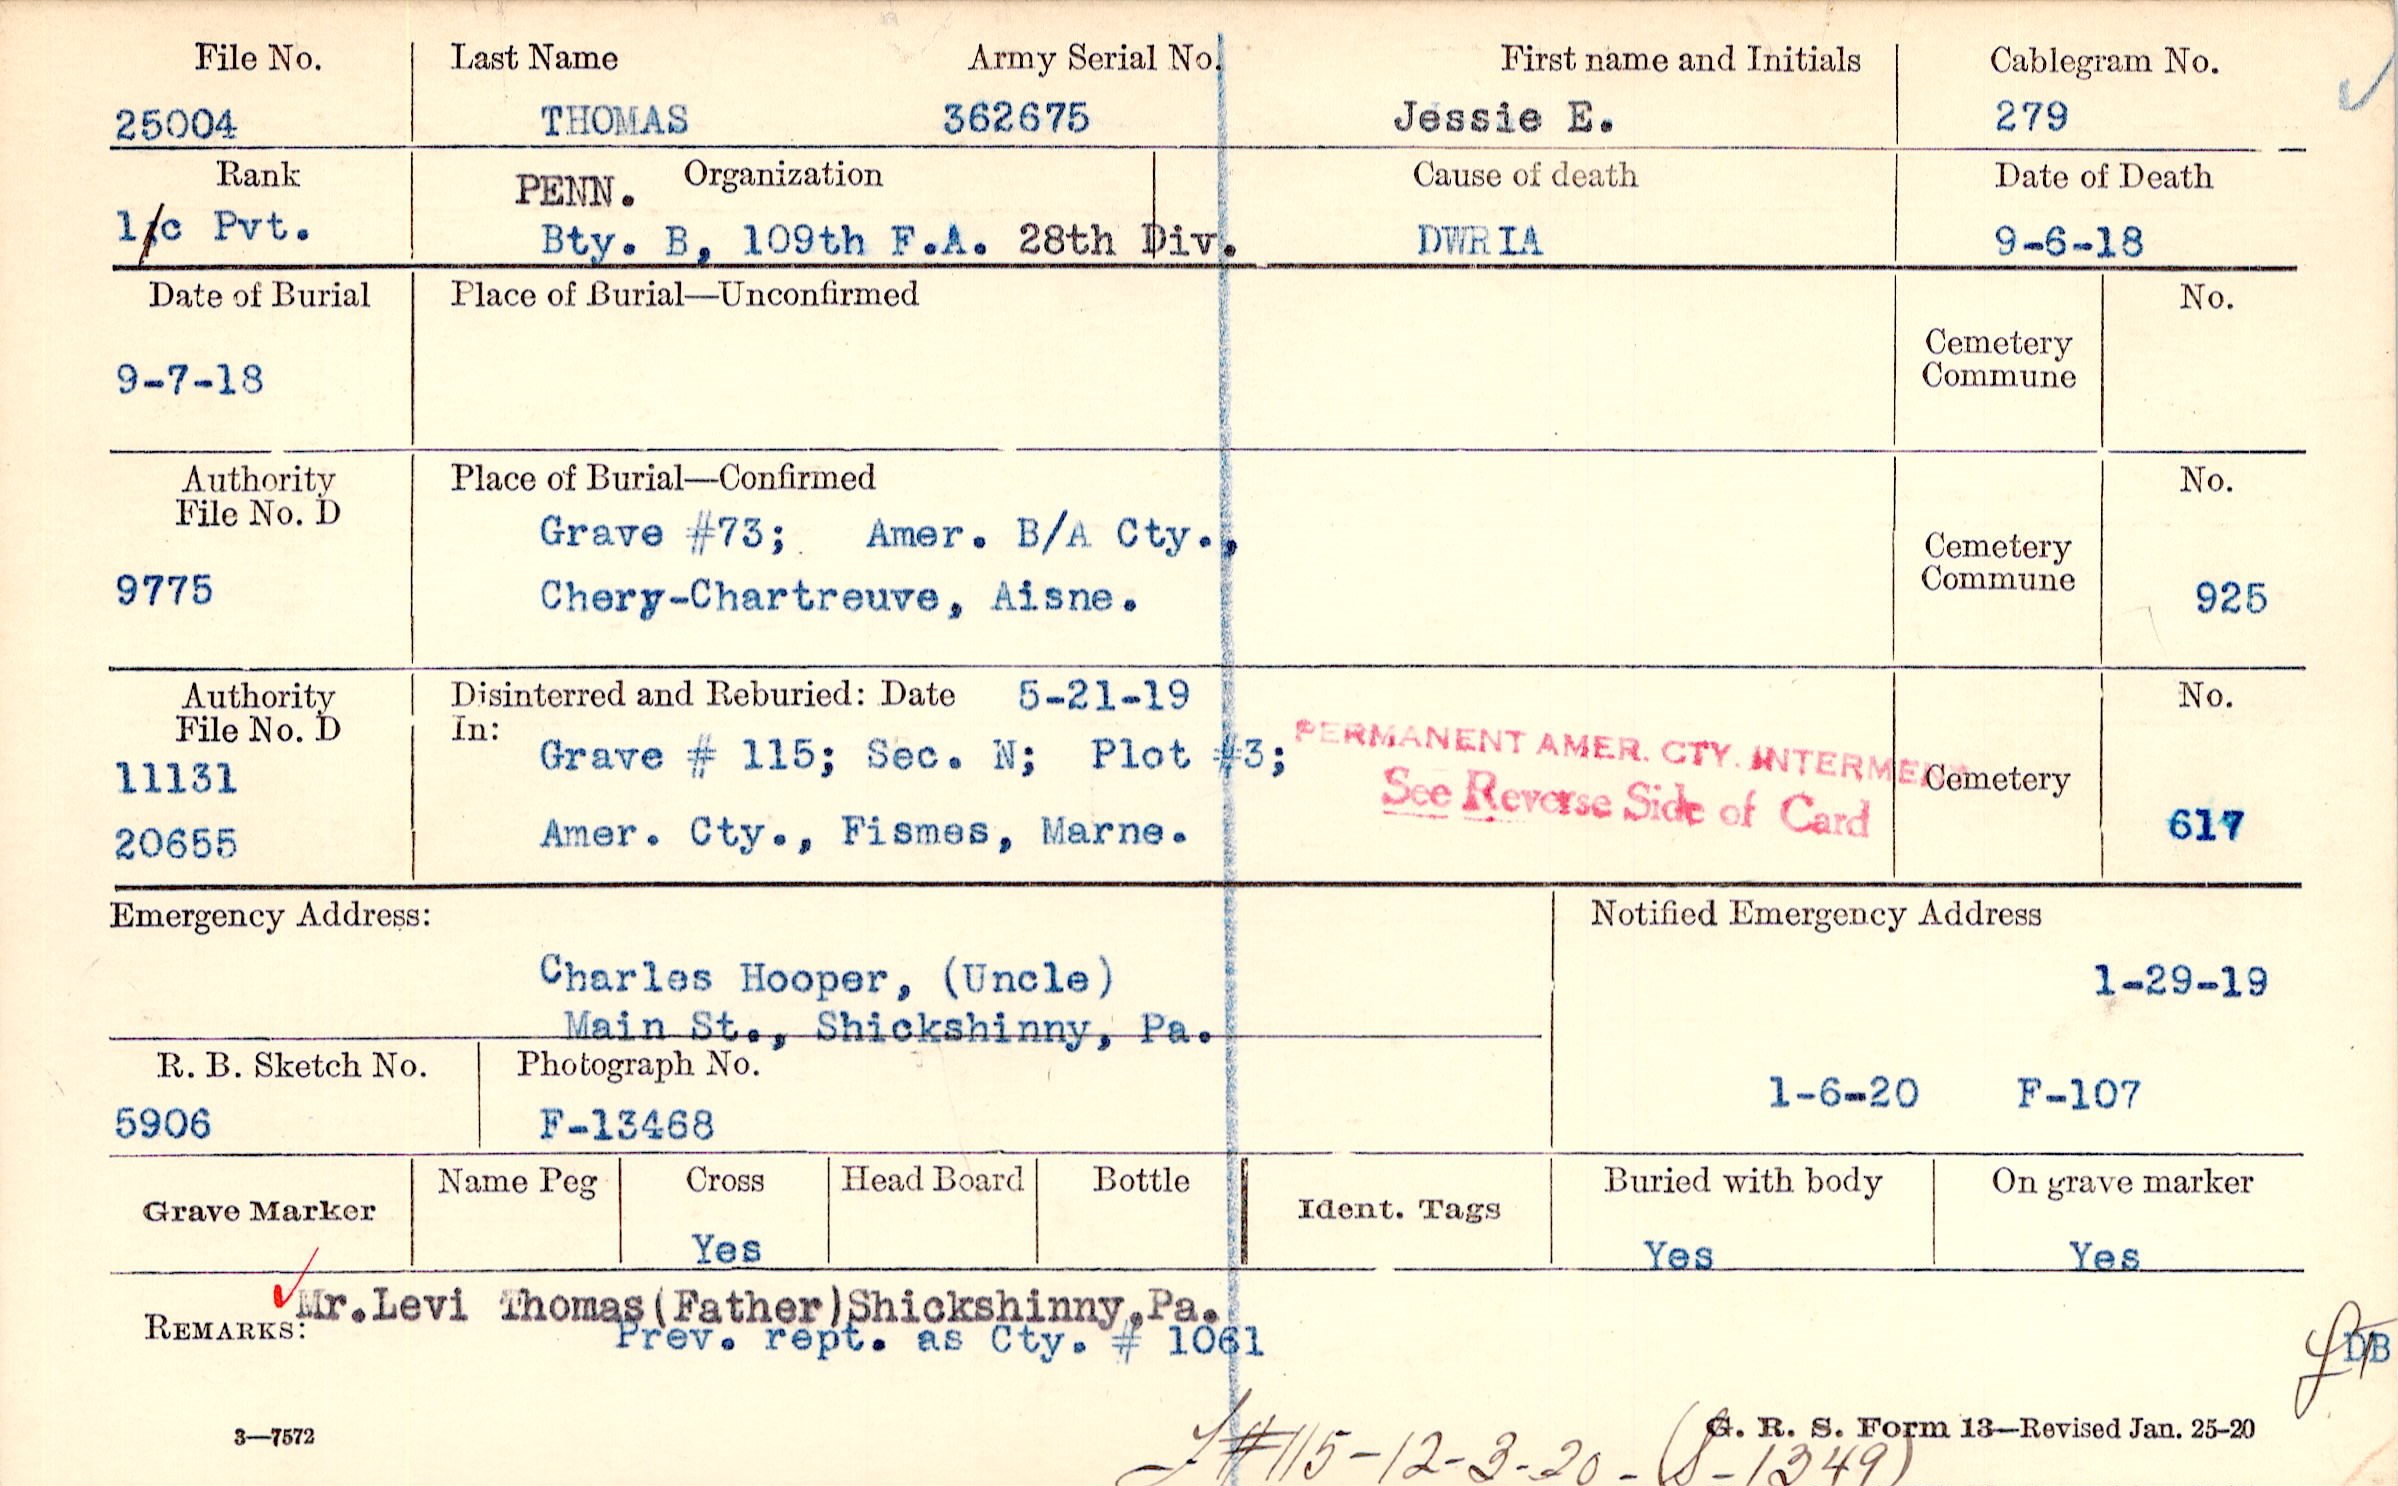 File No. Last Name Army Serial No. First name and Initials Cablegram No.
25004 THOMAS 362675 Jessie E. 279
Rank PENN. Organization Cause of death Date of Death
1/c Pvt. Bty. B, 109th F.A. 28th Div. DWRIA 9-6-18
Date of Burial Place of Burial—Unconfirmed No.
Cemetery
Commune
9-7-18
Authority Place of Burial—Confirmed No.
File No. D
Grave #73; Amer. B/A Cty.,
Cemetery
Commune
9775 Chery-Chartreuve, Aisne. 925
Authority Disinterred and Reburied: Date 5-21-19 No.
File No. D In:
Grave # 115; Sec. N; Plot #3; PERMANENT AMER. CTY. INTERMENT
11131 See Reverse Side of Card Cemetery
20655 Amer. Cty., Fismes, Marne. 617
Emergency Address: Notified Emergency Address
Charles Hooper, (Uncle) 1-29-19
Main St., Shickshinny, Pa.
R. B. Sketch No. Photograph No.
1-6-20 F-107
5906 F-13468
Name Peg Cross Head Board Bottle Buried with body On grave marker
Grave Marker Ident. Tags
Yes Yes Yes
Mr.Levi Thomas(Father)Shickshinny,Pa.
REMARKS:
Prev. rept. as Cty. # 1061
DB
3—7572 G. R. S. Form 13—Revised Jan. 25-20
#115-12-3-20-(S-1349)